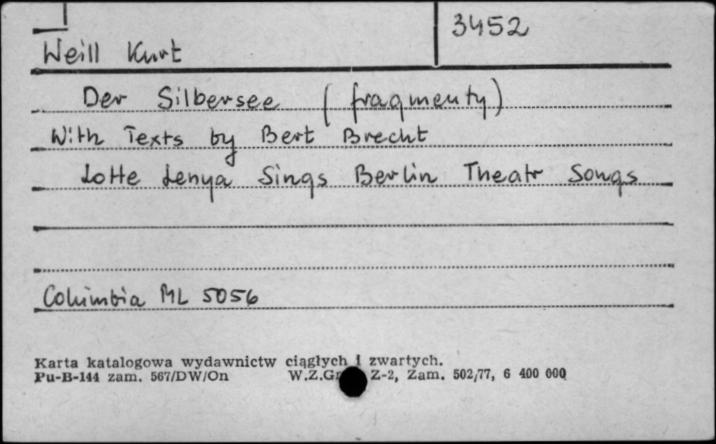 3452
Weill Kurt
Der Silbersee (fragmenty)
With Texts by Bert Brecht
Lotte Lenya Sings Berlin Theatr Songs
Columbia ML 5056
Karta katalogowa wydawnictw ciągłych i zwartych.
Pu-B-144 zam. 567/DW/On W.Z.Gr Z-2, Zam. 502/77, 6 400 000